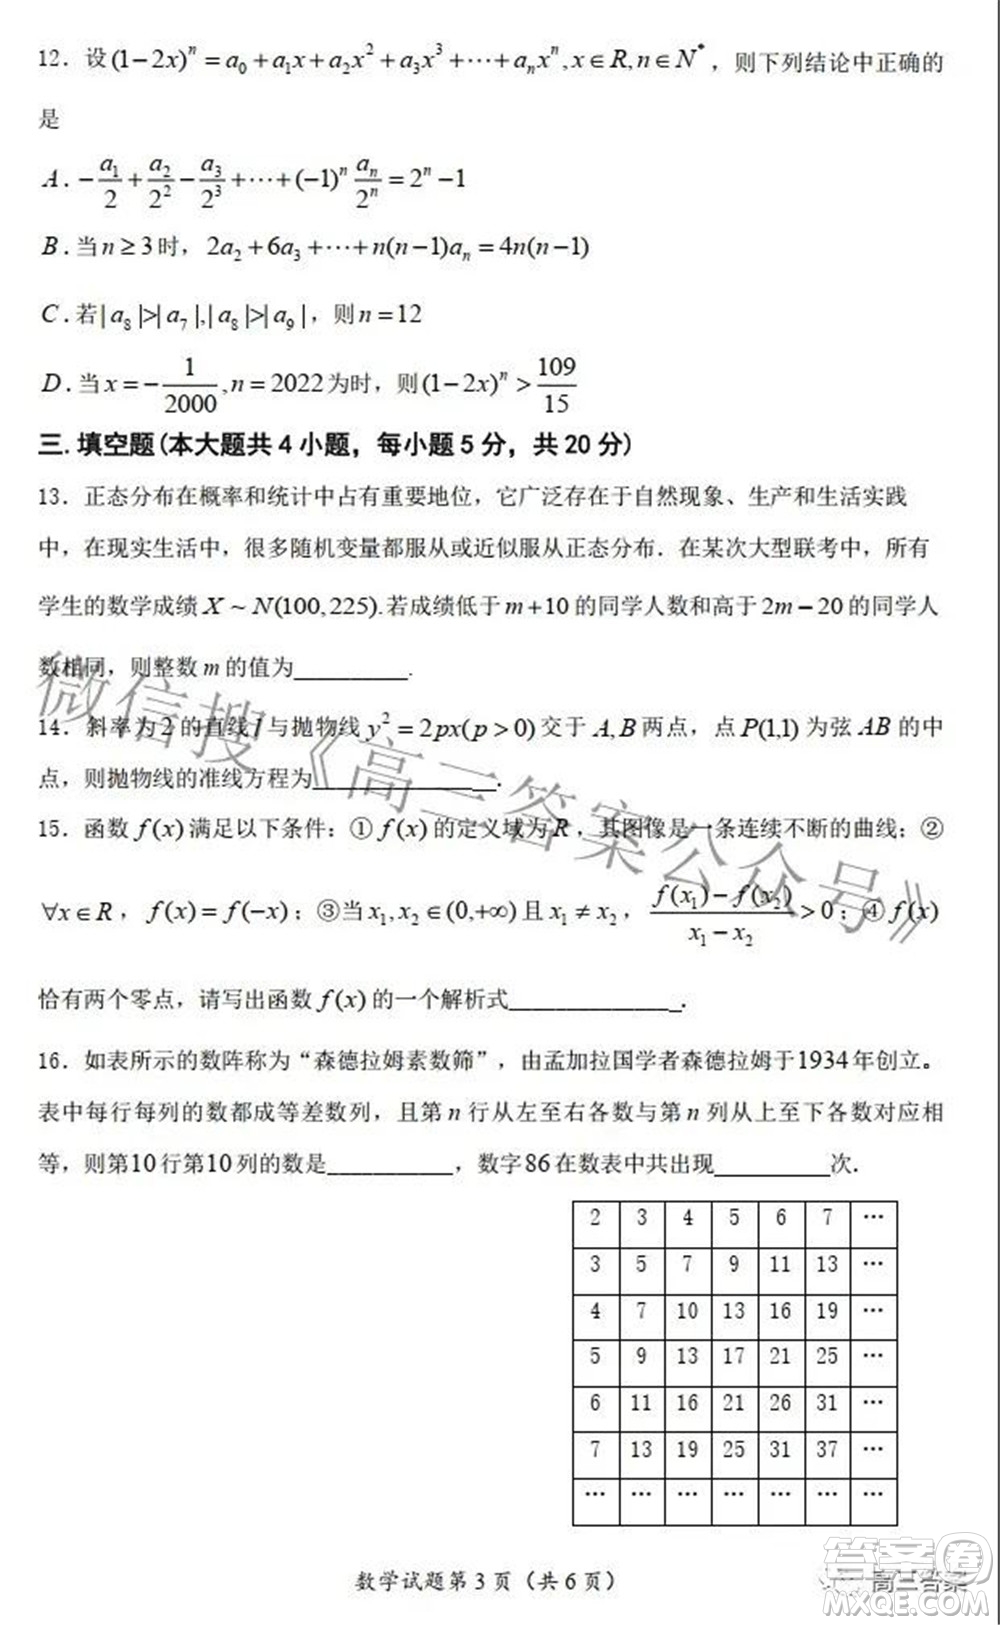 12．设 (1−2x)^n = a_0 + a_1x + a_2x^2 + a_3x^3 + ⋯ + a_nx^n, x∈R, n∈N^*，则下列结论中正确的
是
A．−a_1/2 + a_2/2^2 − a_3/2^3 + ⋯ + (−1)^n a_n/2^n = 2^n −1
B．当 n≥3 时，2a_2 + 6a_3 + ⋯ + n(n−1)a_n = 4n(n−1)
C．若 |a_8|>|a_7|,|a_8|>|a_9|，则 n=12
D．当 x = −1/2000, n = 2022 为时，则 (1−2x)^n > 109/15
三.填空题(本大题共 4 小题，每小题 5 分，共 20 分)
13．正态分布在概率和统计中占有重要地位，它广泛存在于自然现象、生产和生活实践
中，在现实生活中，很多随机变量都服从或近似服从正态分布．在某次大型联考中，所有
学生的数学成绩 X ~ N(100,225).若成绩低于 m+10 的同学人数和高于 2m−20 的同学人
数相同，则整数 m 的值为__________.
14．斜率为 2 的直线 l 与抛物线 y^2 = 2px(p>0) 交于 A,B 两点，点 P(1,1) 为弦 AB 的中
点，则抛物线的准线方程为________________.
15．函数 f(x) 满足以下条件：① f(x) 的定义域为 R，其图像是一条连续不断的曲线；②
∀x∈R，f(x)=f(−x)；③当 x_1,x_2∈(0,+∞) 且 x_1≠x_2，(f(x_1)−f(x_2))/(x_1−x_2)>0；④ f(x)
恰有两个零点，请写出函数 f(x) 的一个解析式_______________.
16．如表所示的数阵称为“森德拉姆素数筛”，由孟加拉国学者森德拉姆于1934年创立。
表中每行每列的数都成等差数列，且第 n 行从左至右各数与第 n 列从上至下各数对应相
等，则第10行第10列的数是___________，数字86在数表中共出现__________次.
2 3 4 5 6 7 ⋯
3 5 7 9 11 13 ⋯
4 7 10 13 16 19 ⋯
5 9 13 17 21 25 ⋯
6 11 16 21 26 31 ⋯
7 13 19 25 31 37 ⋯
⋯ ⋯ ⋯ ⋯ ⋯ ⋯ ⋯
数学试题第 3 页（共 6 页）
微信搜《高三答案公众号》
高三答案
答案卷
MXQE.COM